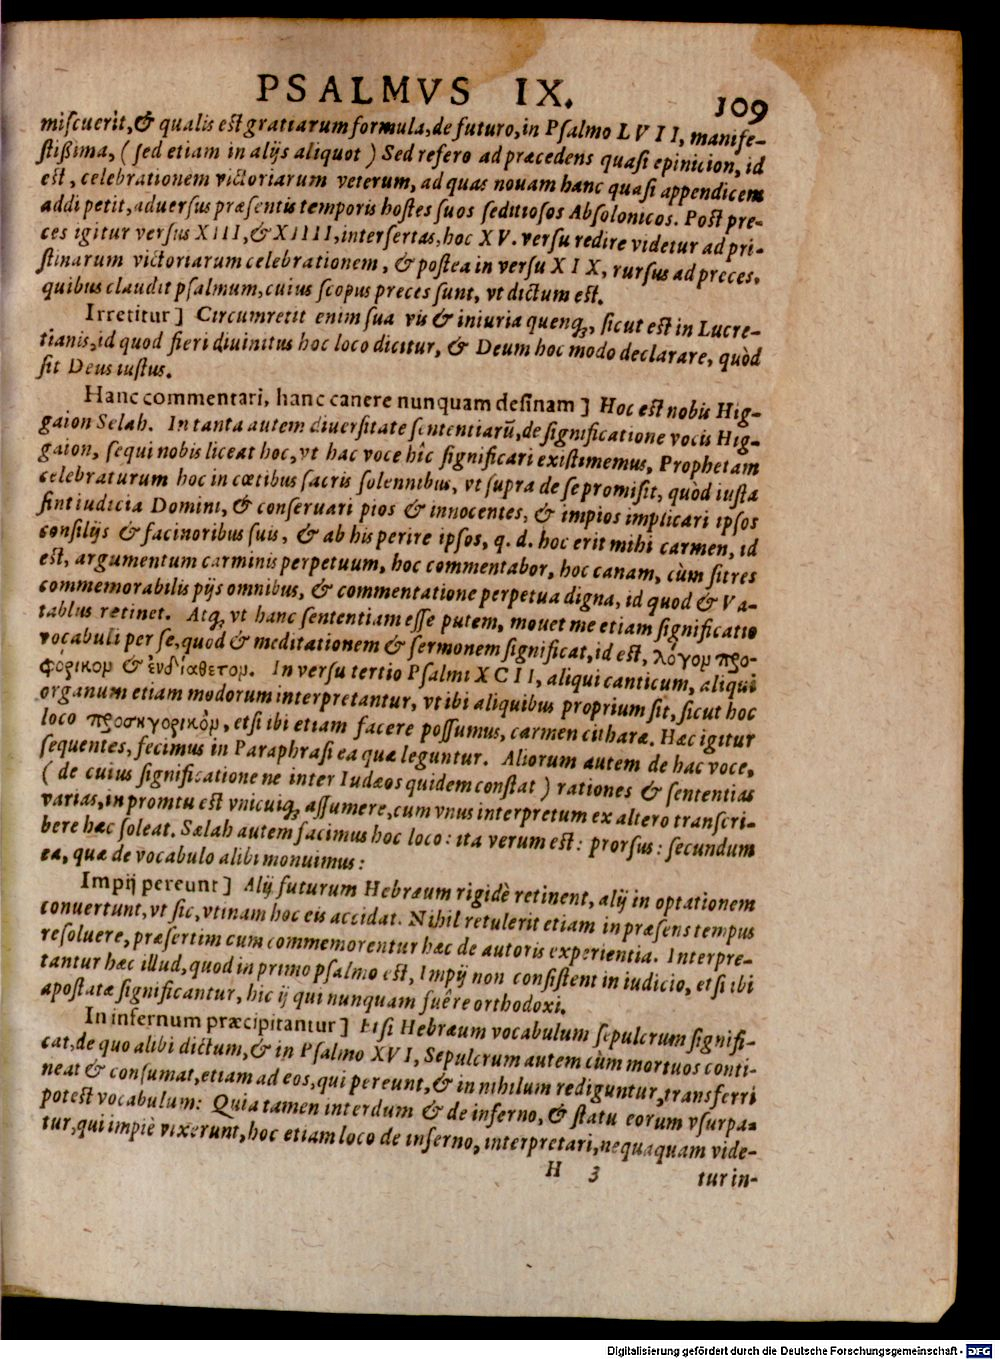 PSALMVS IX. 109
miſcuerit, & qualis eſt gratiarum formula, de futuro, in Pſalmo LVII, manife-
ſtißima, ( ſed etiam in alijs aliquot ) Sed refero ad præcedens quaſi epinicion, id
est, celebrationem victoriarum veterum, ad quas nouam hanc quaſi appendicem
addi petit, aduerſus præſentis temporis hoſtes ſuos ſeditioſos Abſolonicos. Poſt pre-
ces igitur verſus XIII, & XIIII, interſertas, hoc XV. verſu redire videtur ad pri-
ſtinarum victoriarum celebrationem, & poſtea in verſu XIX, rurſus ad preces,
quibus claudit pſalmum, cuius ſcopus preces ſunt, vt dictum eſt.
Irretitur] Circumretit enim ſua vis & iniuria quenq;, ſicut eſt in Lucre-
tianis, id quod fieri diuinitus hoc loco dicitur, & Deum hoc modo declarare, quòd
ſit Deus iuſtus.
Hanc commentari, hanc canere nunquam deſinam] Hoc eſt nobis Hig-
gaion Selah. In tanta autem diuerſitate ſententiarũ, de ſignificatione vocis Hig-
gaion, ſequi nobis liceat hoc, vt hac voce hîc ſignificari exiſtimemus, Prophetam
celebraturum hoc in cœtibus ſacris ſolennibus, vt ſupra de ſe promiſit, quòd iuſta
ſint iudicia Domini, & conſeruari pios & innocentes, & impios implicari ipſos
conſilijs & facinoribus ſuis, & ab his perire ipſos, q. d. hoc erit mihi carmen, id
eſt, argumentum carminis perpetuum, hoc commentabor, hoc canam, cùm ſit res
commemorabilis pijs omnibus, & commentatione perpetua digna, id quod & Va-
tablus retinet. Atq; vt hanc ſententiam eſſe putem, mouet me etiam ſignificatio
vocabuli per ſe, quod & meditationem & ſermonem ſignificat, id eſt, λόγον προ-
φόρικον & ἐνδιάθετον. In verſu tertio Pſalmi XCII, aliqui canticum, aliqui
organum etiam modorum interpretantur, vt ibi aliquibus proprium ſit, ſicut hoc
loco προσηγορικὸν, etſi ibi etiam facere poſſumus, carmen citharæ. Hæc igitur
ſequentes, fecimus in Paraphraſi ea quæ leguntur. Aliorum autem de hac voce,
( de cuius ſignificatione ne inter Iudæos quidem conſtat ) rationes & ſententias
varias, in promtu eſt vnicuiq; aſſumere, cum vnus interpretum ex altero tranſcri-
bere hæc ſoleat. Sælah autem facimus hoc loco: ita verum eſt: prorſus: ſecundum
ea, quæ de vocabulo alibi monuimus:
Impij pereunt] Alij futurum Hebræum rigidè retinent, alij in optationem
conuertunt, vt ſic, vtinam hoc eis accidat. Nihil retulerit etiam in præſens tempus
reſoluere, præſertim cum commemorentur hæc de autoris experientia. Interpre-
tantur hæc illud, quod in primo pſalmo eſt, Impij non conſiſtent in iudicio, etſi ibi
apoſtatæ ſignificantur, hic ij qui nunquam fuêre orthodoxi.
In infernum præcipitantur] Etſi Hebræum vocabulum ſepulcrum ſignifi-
cat, de quo alibi dictum, & in Pſalmo XVI, Sepulcrum autem cùm mortuos conti-
neat & conſumat, etiam ad eos, qui pereunt, & in nihilum rediguntur, transferri
poteſt vocabulum: Quia tamen interdum & de inferno, & ſtatu eorum vſurpa-
tur, qui impiè vixerunt, hoc etiam loco de inferno, interpretari, nequaquam vide-
H 3 tur in-
Digitalisierung gefördert durch die Deutsche Forschungsgemeinschaft - DFG